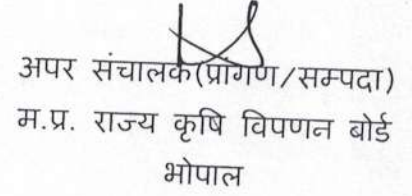 अपर संचालक(प्रांगण/सम्पदा)
म.प्र. राज्य कृषि विपणन बोर्ड
भोपाल